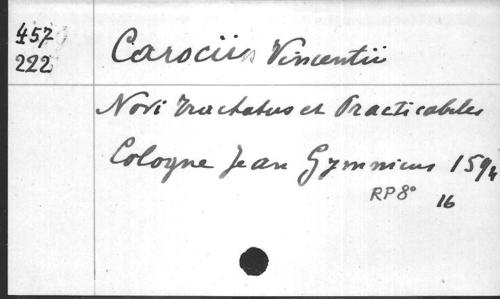 457
222
Carociis Vincentii
Novi tractatus et Practicabiles
Cologne Jean Gymnicus 1594
RP 8°
16